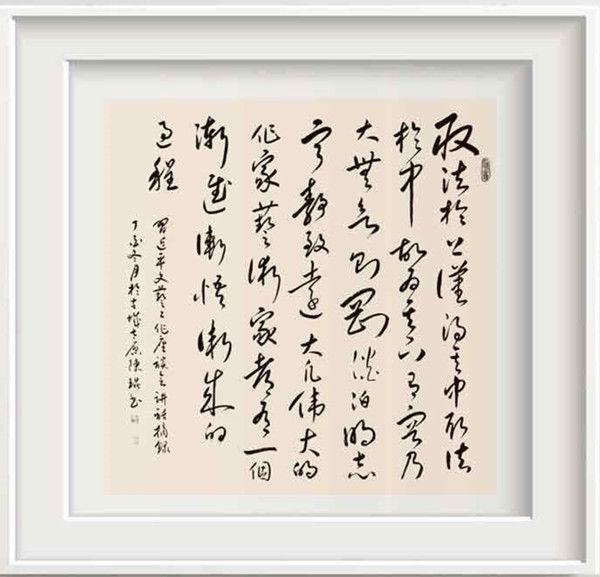 取法於上僅得其中取法
於中故為其下有容乃
大無欲則剛淡泊明志
寧靜致遠大凡偉大的
作家藝術家都有一個
漸進漸悟漸成的
過程
習近平文藝工作座談會講話摘錄
丁酉冬月於古城太原陳琨書